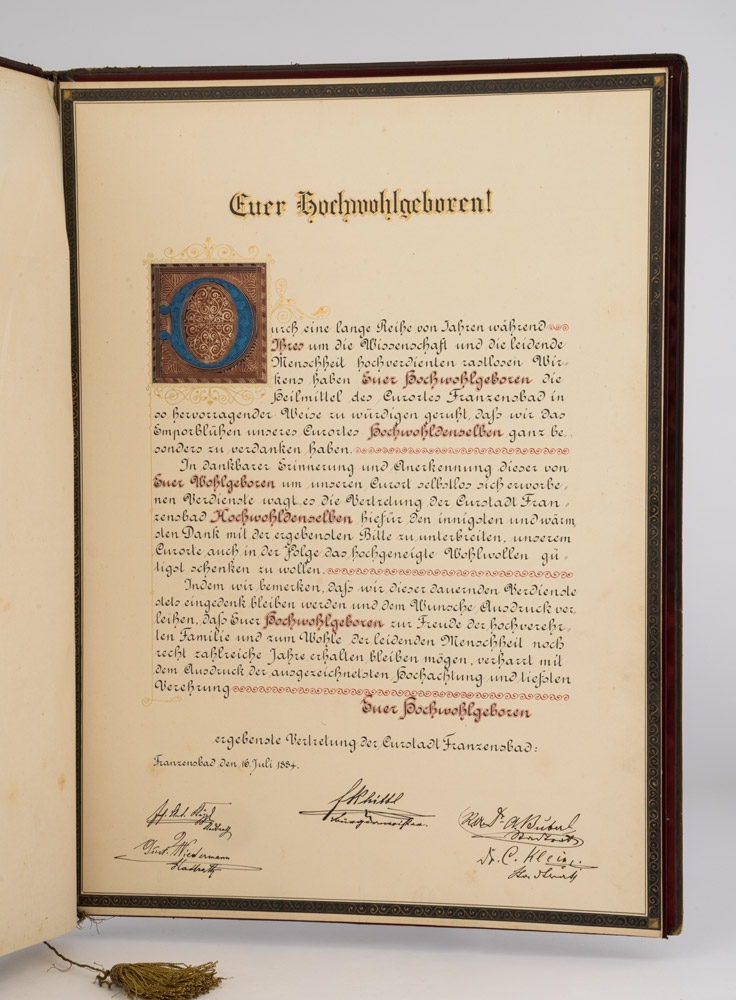 Euer Hochwohlgeboren!
Durch eine lange Reihe von Jahren während
Ihres um die Wissenschaft und die leidende
Menschheit hochverdienten rastlosen Wir-
kens haben Euer Hochwohlgeboren die
Heilmittel des Curortes Franzensbad in
so hervorragender Weise zu würdigen geruht, daß wir das
Emporblühen unseres Curortes Hochwohldenselben ganz be-
sonders zu verdanken haben.
In dankbarer Erinnerung und Anerkennung dieser von
Euer Wohlgeboren um unseren Curort selbstlos sich erworbe-
nen Verdienste wagt es die Vertretung der Curstadt Fran-
zensbad Hochwohldenselben hiefür den innigsten und wärm
sten Dank mit der ergebensten Bitte zu unterbreiten, unserem
Curorte auch in der Folge das hochgeneigte Wohlwollen gü-
tigst schenken zu wollen.
Indem wir bemerken, daß wir dieser dauernden Verdienste
stets eingedenk bleiben werden und dem Wunsche Ausdruck ver
leihen, daß Euer Hochwohlgeboren zur Freude der hochverehr-
ten Familie und zum Wohle der leidenden Menschheit noch
recht zahlreiche Jahre erhalten bleiben mögen, verharrt mit
dem Ausdruck der ausgezeichnetsten Hochachtung und tiefsten
Verehrung
Euer Hochwohlgeboren
ergebenste Vertretung der Curstadt Franzensbad:
Franzensbad den 16. Juli 1884.
Bürgermeister.
Stadtrath
Dr. A. Buberl
Stadtrath
Wiedermann
Stadtrath
Dr. C. Klein
Stadtrath